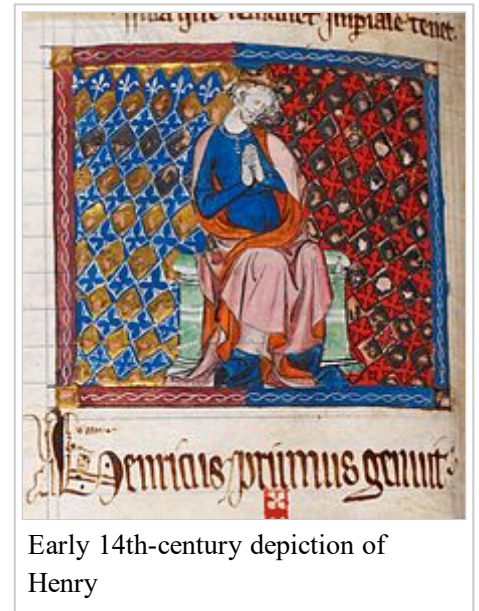 Impiale tenet.
Henricus primus genuit
Early 14th-century depiction of
Henry